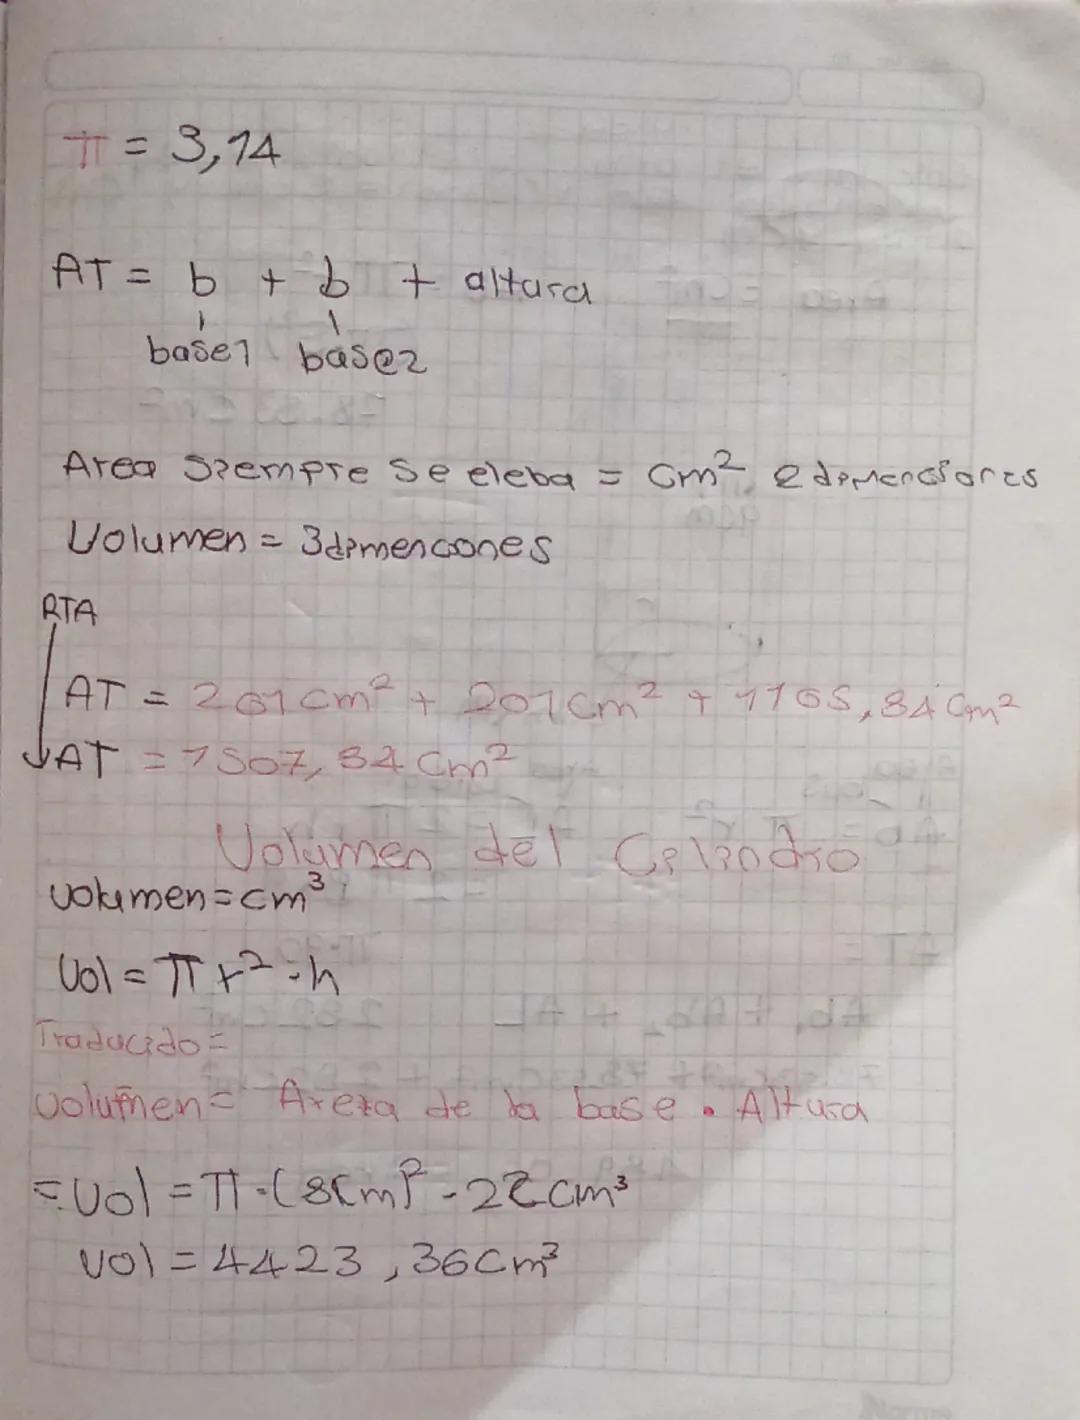 π = 3,14
AT = b + b + altura
base1 base2
Area siempre se eleba = cm² 2 dimensiones
Volumen = 3 dimenciones
RTA
AT = 201 cm² + 201 cm² + 1105,84 cm²
AT = 1507,84 cm²
Volumen del Cilindro
volumen = cm³
Vol = π r² · h
Traducido =
Volumen = Area de la base . Altura
= Vol = π · (8cm)² · 22 cm³
Vol = 4423,36 cm³